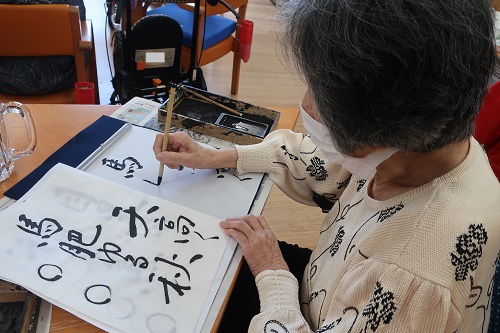 天高く
馬肥ゆる秋
○○○
馬